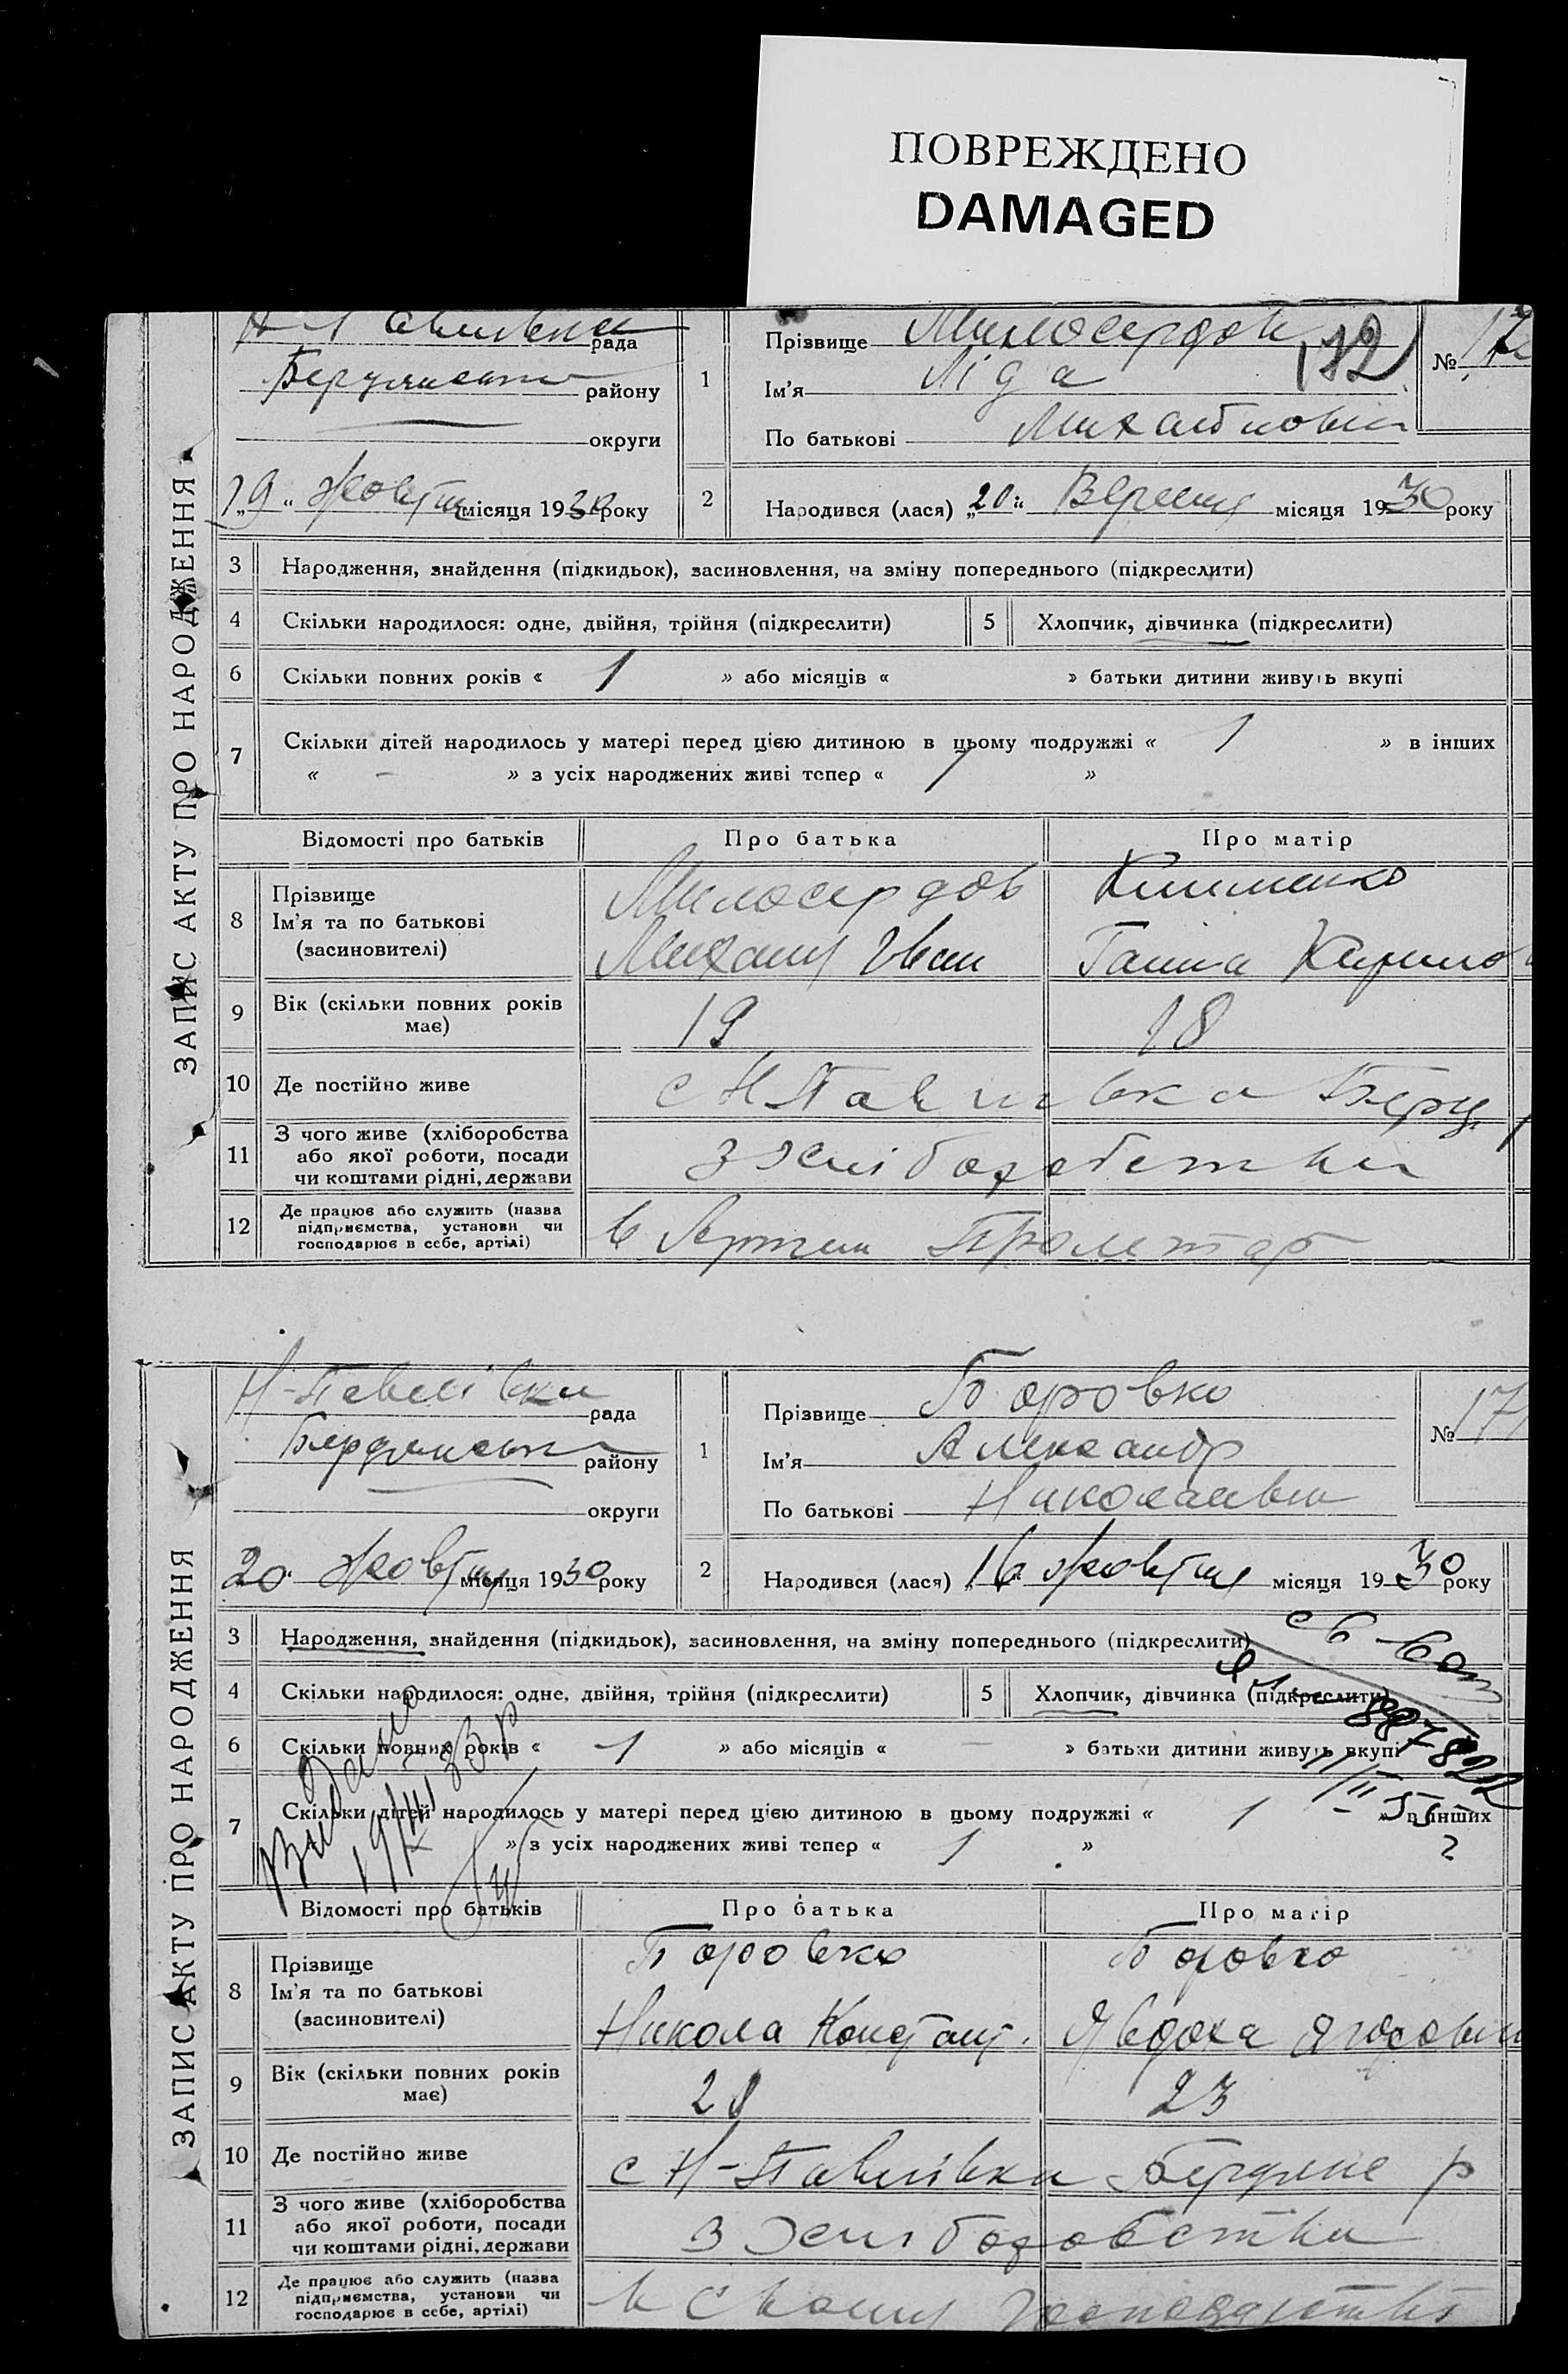 ПОВРЕЖДЕНО
DAMAGED
ЗАПИС АКТУ ПРО НАРОДЖЕННЯ
рада
району
округи
19 Жовтня місяця 1930 року
1
Прізвище Милосердов
Ім'я Ліда
По батькові
132
№
2
Народився (лася) „20" Вересня місяця 1930 року
3 Народження, знайдення (підкидьок), засиновлення, на зміну попереднього (підкреслити)
4 Скільки народилося: одне, двійня, трійня (підкреслити) 5 Хлопчик, дівчинка (підкреслити)
6 Скільки повних років « 1 » або місяців « » батьки дитини живуть вкупі
7 Скільки дітей народилось у матері перед цією дитиною в цьому подружжі « 1 » в інших
« - » з усіх народжених живі тепер « 1 »
Відомості про батьків Про батька Про матір
8 Прізвище Милосердов Клименко
Ім'я та по батькові
(засиновителі) Михаил Иван Ганна
9 Вік (скільки повних років має) 19 18
10 Де постійно живе с Н Павлівка
11 З чого живе (хліборобства або якої роботи, посади чи коштами рідні, держави З хліборобства
12 Де працює або служить (назва підприємства, установи чи господарює в себе, артілі) в Артіли Пролетар
ЗАПИС АКТУ ПРО НАРОДЖЕННЯ
Н-Павлівка рада
Бердянськ району
округи
20 Жовтня місяця 1930 року
1
Прізвище Боровко
Ім'я Александр
По батькові
№ 171
2
Народився (лася) „16 Жовтня місяця 1930 року
3 Народження, знайдення (підкидьок), засиновлення, на зміну попереднього (підкреслити)
4 Скільки народилося: одне, двійня, трійня (підкреслити) 5 Хлопчик, дівчинка (підкреслити)
6 Скільки повних років « 1 » або місяців « — » батьки дитини живуть вкупі
7 Скільки дітей народилось у матері перед цією дитиною в цьому подружжі « 1 » в інших
» з усіх народжених живі тепер « 1 »
Видано
Відомості про батьків Про батька Про матір
8 Прізвище Боровко Боровко
Ім'я та по батькові
(засиновителі) Никола Констант. Явдоха
9 Вік (скільки повних років має) 28 23
10 Де постійно живе с Н-Павлівка Бердянс р
11 З чого живе (хліборобства або якої роботи, посади чи коштами рідні, держави З хліборобства
12 Де працює або служить (назва підприємства, установи чи господарює в себе, артілі) в своим господарстві